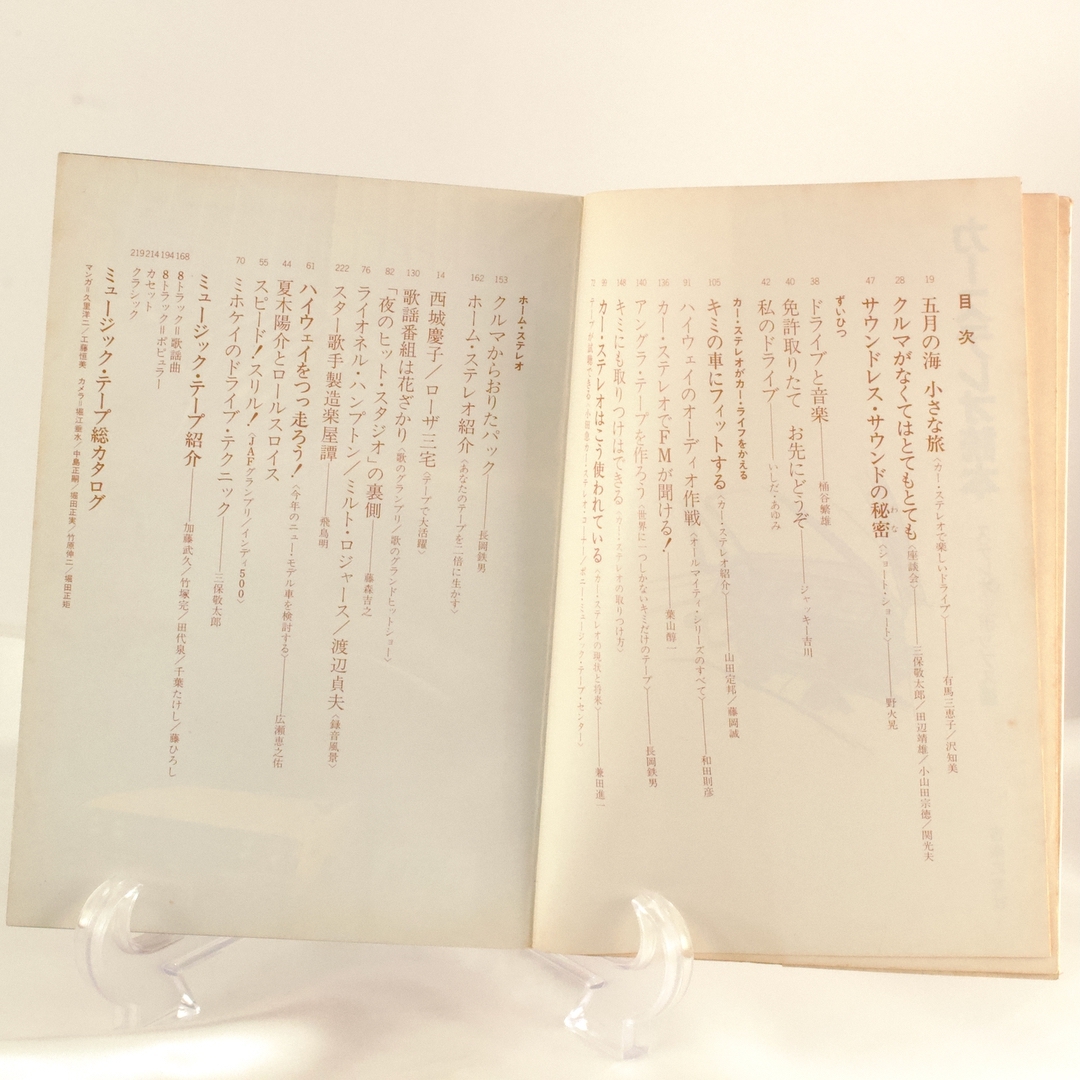 目次
19 五月の海 小さな旅〈カー・ステレオで楽しいドライブ〉——有馬三恵子/沢知美
28 クルマがなくてはとてもとても〈座談会〉——三保敬太郎/田辺靖雄/小山田宗徳/関光夫
47 サウンドレス・サウンドの秘密〈ショート・ショート〉——野火晃
わな
ずいひつ
38 ドライブと音楽——桶谷繁雄
40 免許取りたて お先にどうぞ——ジャッキー吉川
42 私のドライブ——いしだ・あゆみ
カー・ステレオがカー・ライフをかえる
105 キミの車にフィットする〈カー・ステレオ紹介〉——山田定邦/藤岡誠
91 ハイウェイのオーディオ作戦〈オールマイティ・シリーズのすべて〉——和田則彦
136 カー・ステレオでFMが聞ける!——葉山醇一
140 アングラ・テープを作ろう〈世界に一つしかないキミだけのテープ〉——長岡鉄男
148 キミにも取りつけはできる〈カー・ステレオの取りつけ方〉
99 カー・ステレオはこう使われている〈カー・ステレオの現状と将来〉——兼田進一
ホーム・ステレオ
153 クルマからおりたパック——長岡鉄男
162 ホーム・ステレオ紹介〈あなたのテープを二倍に生かす〉
14 西城慶子/ローザ三宅〈テープで大活躍〉
130 歌謡番組は花ざかり〈歌のグランプリ/歌のグランドヒットショー〉
82 「夜のヒット・スタジオ」の裏側——藤森吉之
76 ライオネル・ハンプトン/ミルト・ロジャース/渡辺貞夫〈録音風景〉
222 スター歌手製造楽屋譚——飛鳥明
61 ハイウェイをつっ走ろう!〈今年のニュー・モデル車を検討する〉——広瀬恵之佑
44 夏木陽介とロールスロイス
55 スピード!スリル!〈JAFグランプリ/インディ500〉
70 ミホケイのドライブ・テクニック——三保敬太郎
ミュージック・テープ紹介——加藤武久/竹塚完/田代泉/千葉たけし/藤ひろし
168 8トラック=歌謡曲
194 8トラック=ポピュラー
214 カセット
219 クラシック
ミュージック・テープ総カタログ
マンガ=久里洋二/工藤恒美 カメラ=堀江垂水/中島正嗣/堀田正実/竹原伸二/堀田正矩